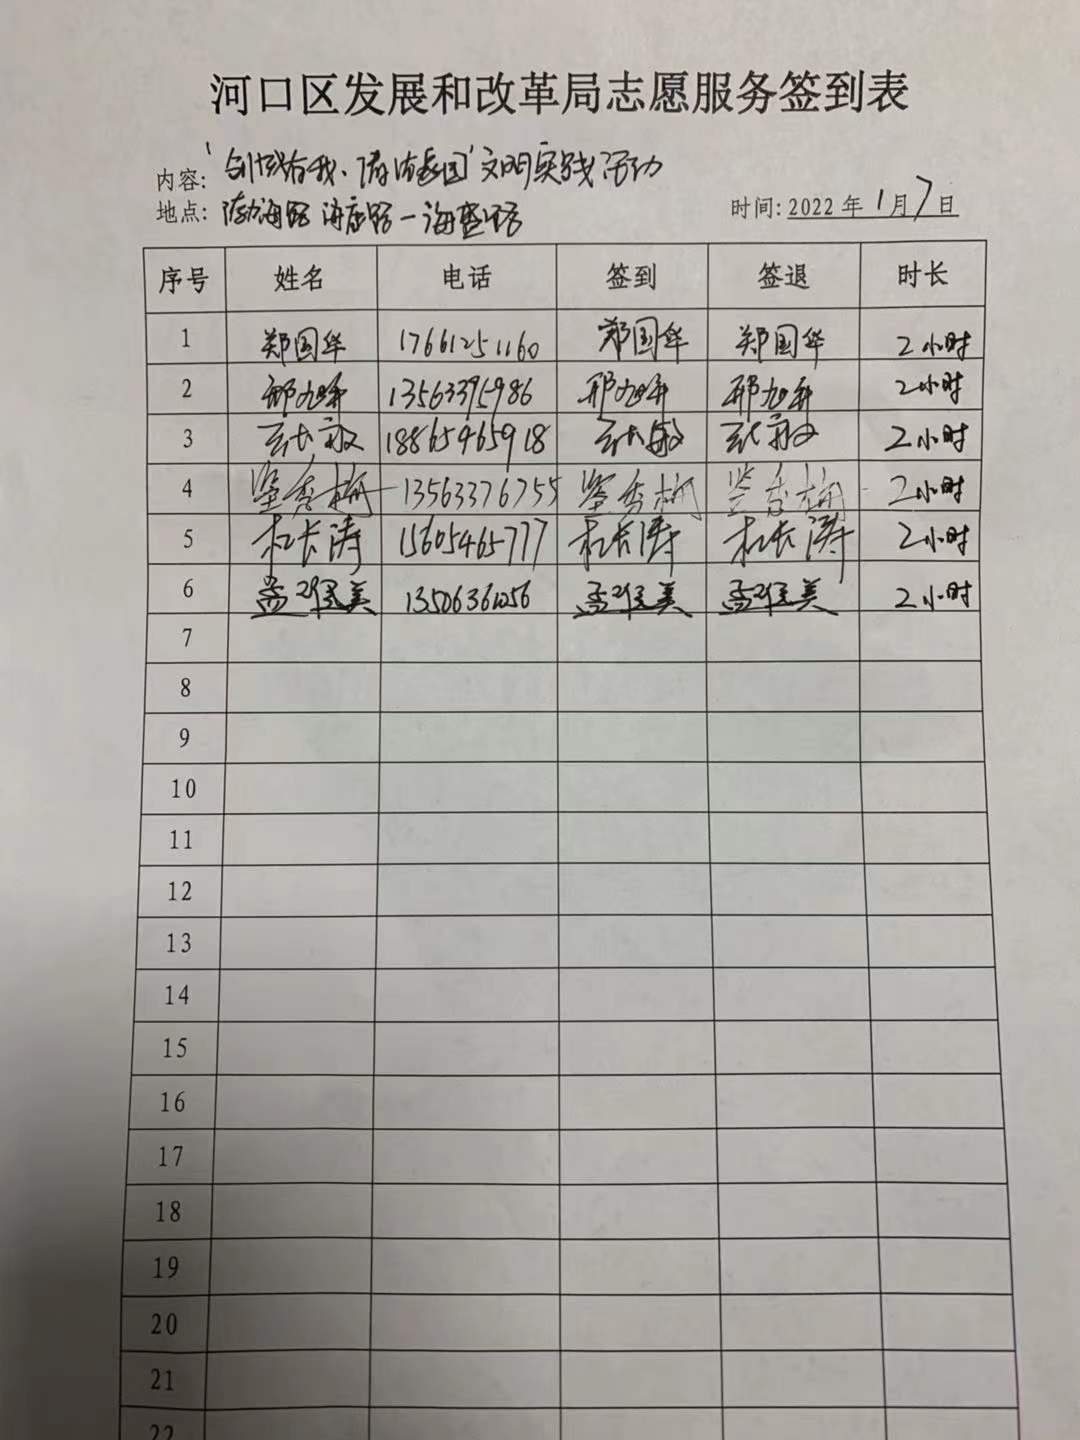 河口区发展和改革局志愿服务签到表
内容: "创城有我、清洁家园"文明实践活动
地点: 渤海路 海庭路-海盛路
时间: 2022年1月7日
序号 姓名 电话 签到 签退 时长
1 郑国华 17661251160 郑国华 郑国华 2小时
2 邢旭 13563395986 邢旭 邢旭 2小时
3 张敏 18865465918 张敏 张敏 2小时
4 秀梅 13563376755 秀梅 秀梅 2小时
5 杜长涛 15605465777 杜长涛 杜长涛 2小时
6 孟维美 13506361056 孟维美 孟维美 2小时
7
8
9
10
11
12
13
14
15
16
17
18
19
20
21
22